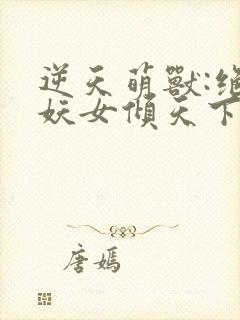 逆天萌獸:絕
妖女傾天下
唐嫣